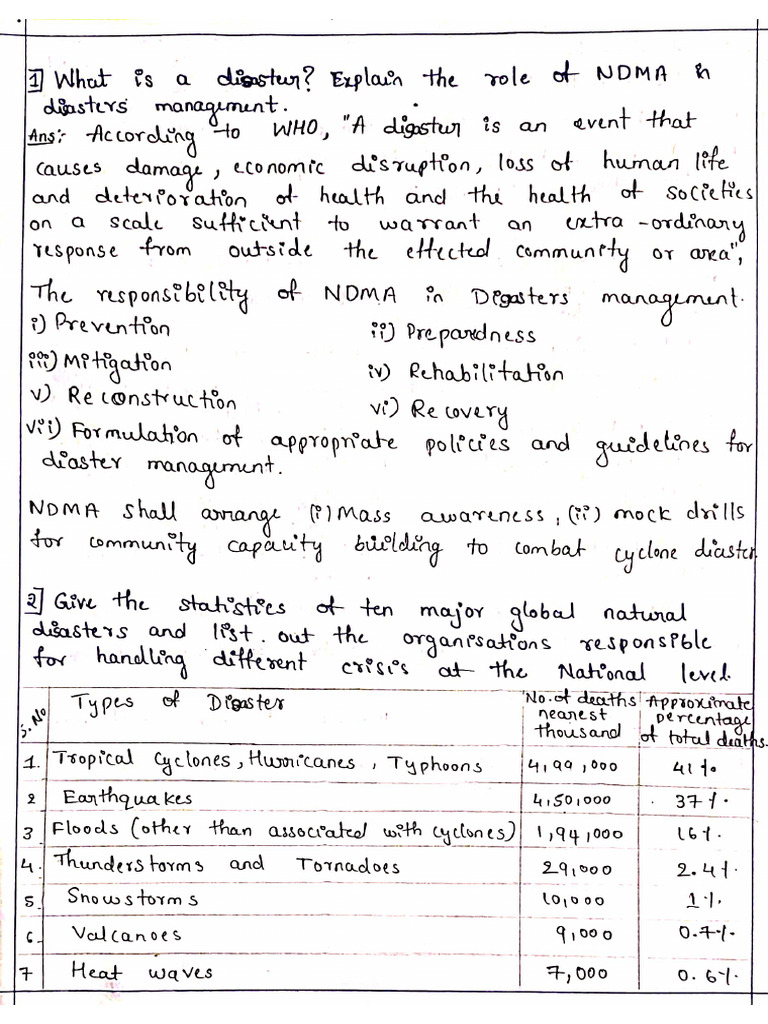 1] What is a disaster? Explain the role of NDMA in
disasters management.
Ans:- According to WHO, "A disaster is an event that
causes damage, economic disruption, loss of human life
and deterioration of health and the health of societies
on a scale sufficient to warrant an extra-ordinary
response from outside the effected community or area",
The responsibility of NDMA in Disasters management.
i) Prevention ii) Prepardness
iii) Mitigation iv) Rehabilitation
v) Reconstruction vi) Recovery
vii) Formulation of appropriate policies and guidelines for
diaster management.
NDMA shall arrange (i) Mass awareness, (ii) mock drills
for community capacity building to combat cyclone diaster
2] Give the statistics of ten major global natural
disasters and list out the organisations responsible
for handling different crisis at the National level.
S.No Types of Disaster No. of deaths nearest thousand Approximate percentage of total deaths.
1. Tropical Cyclones, Hurricanes, Typhoons 4,99,000 41%
2 Earthquakes 4,50,000 37%
3 Floods (other than associated with cyclones) 1,94,000 16%
4. Thunderstorms and Tornadoes 29,000 2.4%
5 Snowstorms 10,000 1%
6 Valcanoes 9,000 0.7%
7 Heat waves 7,000 0.6%